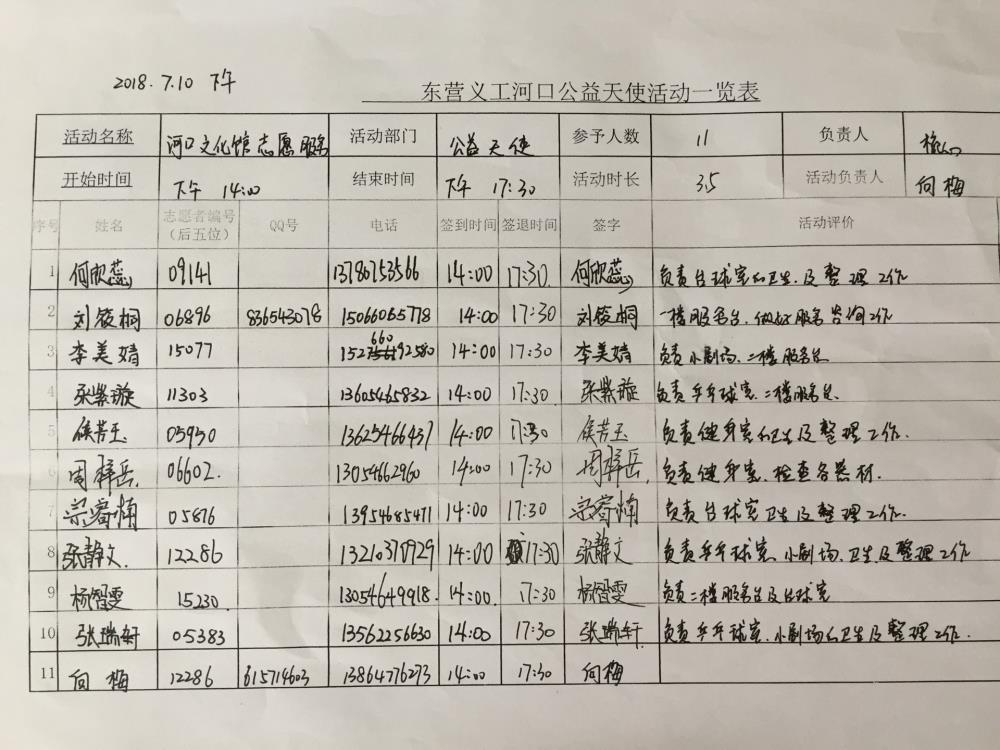 2018.7.10 下午
东营义工河口公益天使活动一览表
活动名称 河口文化馆志愿服务 活动部门 公益天使 参予人数 11 负责人
开始时间 下午 14:00 结束时间 下午 17:30 活动时长 3.5 活动负责人 向梅
序号 姓名 志愿者编号（后五位） QQ号 电话 签到时间 签退时间 签字 活动评价
1 何欣蕊 09141 13786753566 14:00 17:30. 何欣蕊 负责台球室的卫生及整理工作
2 刘筱桐 06896 836543078 15066065778 14:00 17:30 刘筱桐 一楼服务台，做好服务咨询工作
3 李美婧 15077 15266092580 14:00 17:30 李美婧 负责小剧场、二楼服务台
4 张紫璇 11303 13605465832 14:00 17:30. 张紫璇 负责乒乓球室、二楼服务台.
5 侯芳玉 05950 13625466437 14:00 17:30 侯芳玉 负责健身室的卫生及整理工作.
6 周梓岳. 06602. 13054662960 14:00 17:30 周梓岳. 负责健身室，检查各器材.
7 宗睿楠 05876 13954685471 14:00 17:30 宗睿楠 负责台球室卫生及整理工作.
8 张静文. 12286 13210370929 14:00 17:30 张静文 负责乒乓球室、小剧场、卫生及整理工作
9 杨智雯 15230. 13054649918. 14:00. 17:30 杨智雯 负责二楼服务台及台球室
10 张瑞轩 05383 13562256630 14:00 17:30 张瑞轩 负责乒乓球室、小剧场的卫生及整理工作.
11 向梅 12286 615714603 13864776273 14:00 17:30 向梅